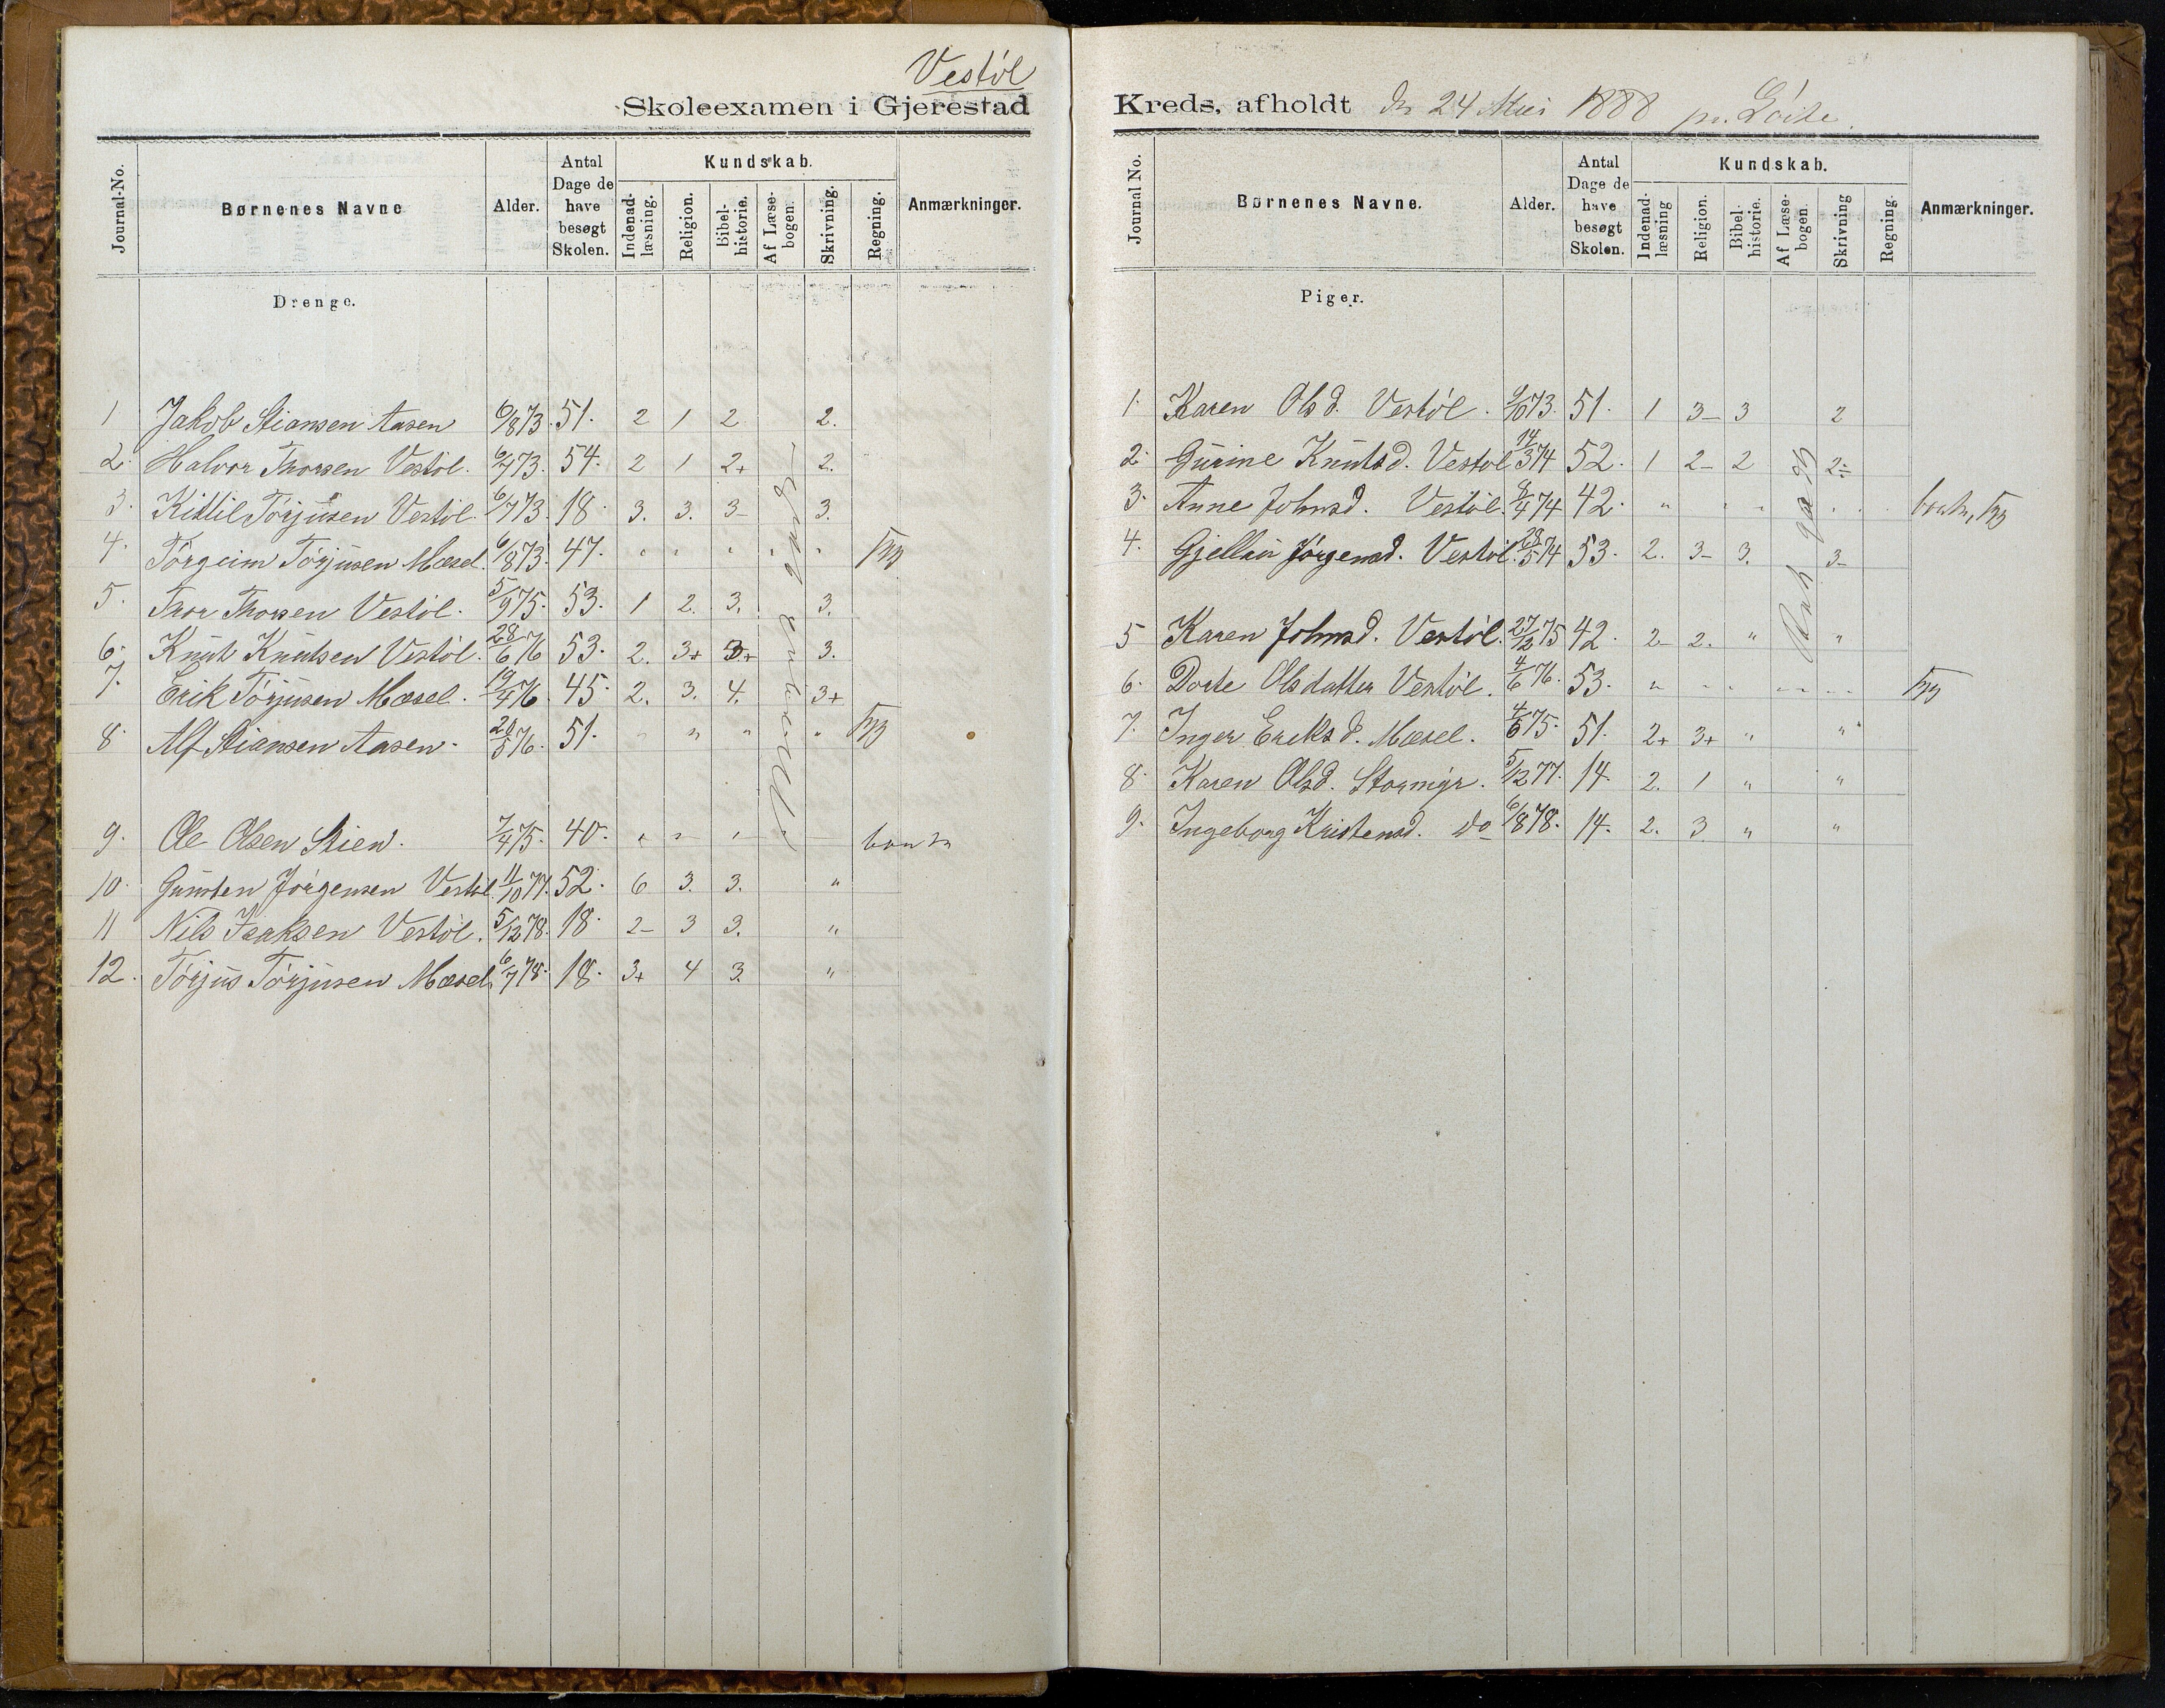 Vestöl
Skoleexamen i Gjerestad
Journal-No.
Børnenes Navne
Alder.
Antal Dage de have besøgt Skolen.
Kundskab.
Indenad-læsning.
Religion.
Bibel-historie.
Af Læse-bogen.
Skrivning.
Regning.
Anmærkninger.
Drenge.
1 Jakob Stiansen Aasen 6/8 73. 51. 2 1 2 2.
2. Halvor Thorsen Vestöl. 6/7 73. 54. 2 1 2+ 2.
3. Kittil Törjusen Vestöl. 6/7 73 18. 3. 3. 3- 3.
4. Törgeim Törjusen Mæsel. 6/8 73. 47. " " " " "
5. Thor Thorsen Vestöl. 5/9 75. 53. 1 2. 3. 3.
6. Knut Knutsen Vestöl. 28/6 76 53. 2. 3+ 3+ 3.
7. Erik Törjusen Mæsel. 19/4 76. 45. 2. 3. 4. 3+
8. Alf Stiansen Aasen. 20/5 76. 51. " " " "
9. Ole Olsen Stien. 7/4 75. 40. " " "
10. Gunsten Jörgensen Vestöl. 11/10 77. 52. 6 3. 3. "
11 Nils Isaksen Vestöl. 5/12 78. 18. 2- 3 3. "
12. Törjus Törjusen Mæsel. 6/7 78. 18. 3+ 4 3. "
Kreds, afholdt den 24 Mai 1888 på
Journal No.
Børnenes Navne.
Alder.
Antal Dage de have besøgt Skolen.
Kundskab.
Indenad-læsning
Religion.
Bibel-historie.
Af Læse-bogen.
Skrivning
Regning.
Anmærkninger.
Piger.
1. Karen Olsd. Vestöl. 9/10 73. 51. 1 3- 3 2
2. Gurine Knutsd. Vestöl 14/3 74 52. 1 2- 2 2÷
3. Anne Johnsd. Vestöl. 8/4 74 42. " " "
4. Jørgensd. Vestöl. 28/5 74 53. 2. 3- 3. 3-
5 Karen Johnsd. Vestöl. 27/12 75 42. 2- 2. " "
6. Dorte Olsdatter Vestöl. 4/6 76. 53. " " " " "
7. Inger Eriksd. Mæsel. 4/6 75. 51. 2+ 3+ " "
8. Karen Olsd. Stormyr. 5/12 77. 14. 2. 1 " "
9. Ingeborg Kristensd. do 6/8 78. 14. 2. 3. " "